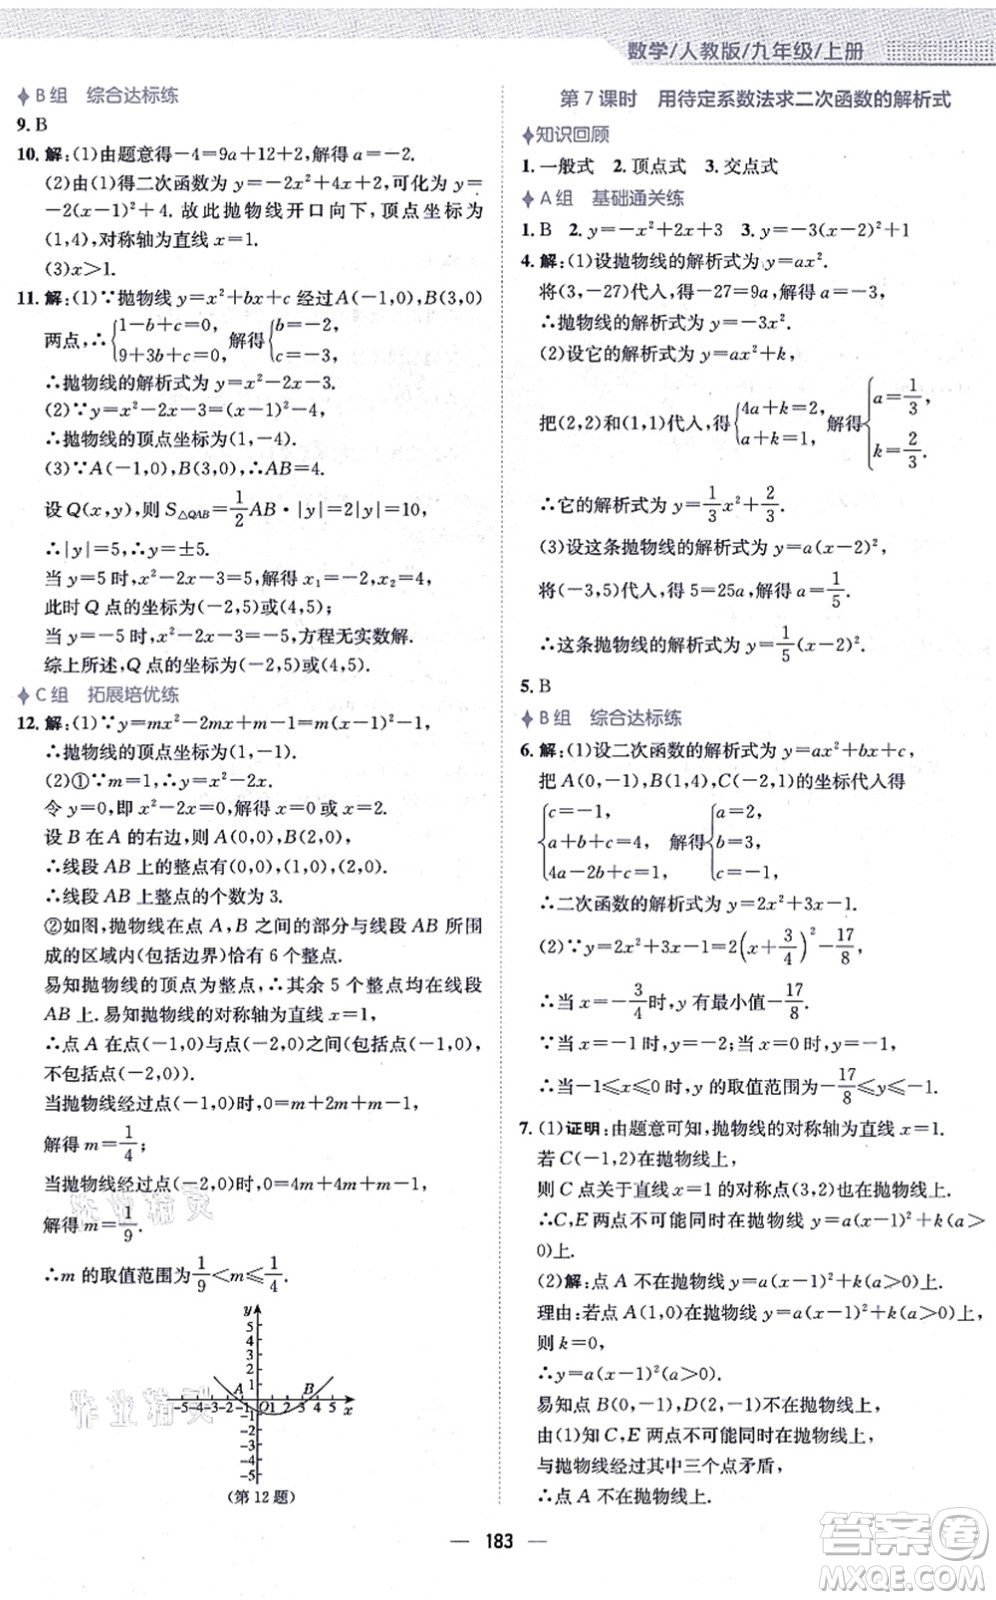 数学/人教版/九年级/上册
B组 综合达标练
9. B
10. 解:(1)由题意得-4=9a+12+2,解得a=-2.
(2)由(1)得二次函数为 y=-2x²+4x+2,可化为 y=
-2(x-1)²+4. 故此抛物线开口向下,顶点坐标为
(1,4),对称轴为直线x=1.
(3)x>1.
11. 解:(1)∵抛物线y=x²+bx+c经过A(-1,0),B(3,0)
两点,∴{1-b+c=0, 9+3b+c=0, 解得{b=-2, c=-3.
∴抛物线的解析式为y=x²-2x-3.
(2)∵y=x²-2x-3=(x-1)²-4,
∴抛物线的顶点坐标为(1,-4).
(3)∵A(-1,0),B(3,0),∴AB=4.
设Q(x,y),则S△QAB=1/2AB·|y|=2|y|=10,
∴|y|=5,∴y=±5.
当y=5时,x²-2x-3=5,解得x₁=-2,x₂=4,
此时Q点的坐标为(-2,5)或(4,5);
当y=-5时,x²-2x-3=-5,方程无实数解.
综上所述,Q点的坐标为(-2,5)或(4,5).
C组 拓展培优练
12. 解:(1)∵y=mx²-2mx+m-1=m(x-1)²-1,
∴抛物线的顶点坐标为(1,-1).
(2)①∵m=1,∴y=x²-2x.
令y=0,即x²-2x=0,解得x=0或x=2.
设B在A的右边,则A(0,0),B(2,0),
∴线段AB上的整点有(0,0),(1,0),(2,0),
∴线段AB上整点的个数为3.
②如图,抛物线在点A,B之间的部分与线段AB所围
成的区域内(包括边界)恰有6个整点.
易知抛物线的顶点为整点,∴其余5个整点均在线段
AB上.易知抛物线的对称轴为直线x=1,
∴点A在点(-1,0)与点(-2,0)之间(包括点(-1,0),
不包括点(-2,0)).
当抛物线经过点(-1,0)时,0=m+2m+m-1,
解得m=1/4;
当抛物线经过点(-2,0)时,0=4m+4m+m-1,
解得m=1/9.
∴m的取值范围为1/9<m≤1/4.
y
5
4
3
2
1
A B
-5-4-3-2-1 O 1 2 3 4 5 x
-1
-2
-3
-4
-5
(第12题)
第7课时 用待定系数法求二次函数的解析式
知识回顾
1. 一般式 2. 顶点式 3. 交点式
A组 基础通关练
1. B 2. y=-x²+2x+3 3. y=-3(x-2)²+1
4. 解:(1)设抛物线的解析式为y=ax².
将(3,-27)代入,得-27=9a,解得a=-3,
∴抛物线的解析式为y=-3x².
(2)设它的解析式为y=ax²+k,
把(2,2)和(1,1)代入,得{4a+k=2, a+k=1, 解得{a=1/3, k=2/3.
∴它的解析式为y=1/3x²+2/3.
(3)设这条抛物线的解析式为y=a(x-2)²,
将(-3,5)代入,得5=25a,解得a=1/5.
∴这条抛物线的解析式为y=1/5(x-2)².
5. B
B组 综合达标练
6. 解:(1)设二次函数的解析式为y=ax²+bx+c,
把A(0,-1),B(1,4),C(-2,1)的坐标代入得
{c=-1, a+b+c=4, 4a-2b+c=1, 解得{a=2, b=3, c=-1,
∴二次函数的解析式为y=2x²+3x-1.
(2)∵y=2x²+3x-1=2(x+3/4)²-17/8,
∴当x=-3/4时,y有最小值-17/8.
∵当x=-1时,y=-2;当x=0时,y=-1,
∴当-1≤x≤0时,y的取值范围为-17/8≤y≤-1.
7. (1)证明:由题意可知,抛物线的对称轴为直线x=1.
若C(-1,2)在抛物线上,
则C点关于直线x=1的对称点(3,2)也在抛物线上.
∴C,E两点不可能同时在抛物线y=a(x-1)²+k(a>
0)上.
(2)解:点A不在抛物线y=a(x-1)²+k(a>0)上.
理由:若点A(1,0)在抛物线y=a(x-1)²+k(a>0)上,
则k=0,
∴y=a(x-1)²(a>0).
易知点B(0,-1),D(2,-1)不可能在抛物线上.
由(1)知C,E两点不可能同时在抛物线上,这与
抛物线经过其中三个点矛盾,
∴点A不在抛物线上.
183
作业精灵
作业精灵
答案卷
MXQE.COM